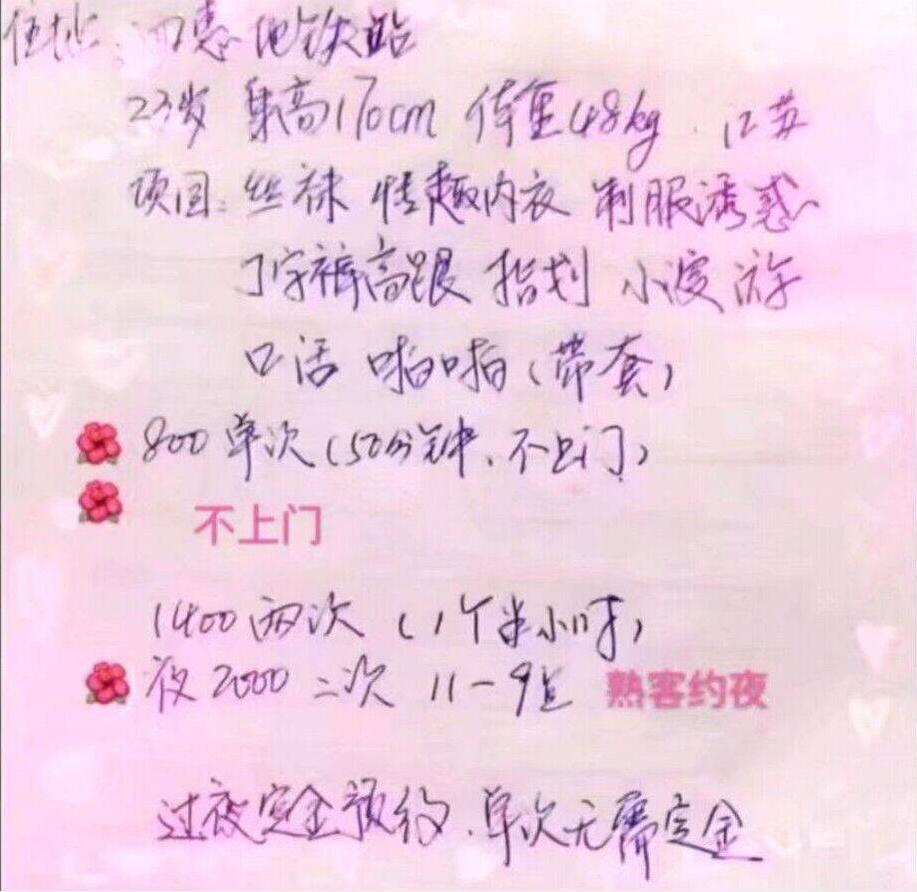 住址：四惠地铁站
23岁 身高170cm 体重48kg. 江苏
项目: 丝袜 情趣内衣 制服诱惑
丁字裤高跟 指划 小漫游
口活 啪啪(带套)
800单次(50分钟、不上门)
不上门
1400两次 (1个半小时)
夜2000 二次 11-9点 熟客约夜
过夜定金预约、单次无需定金